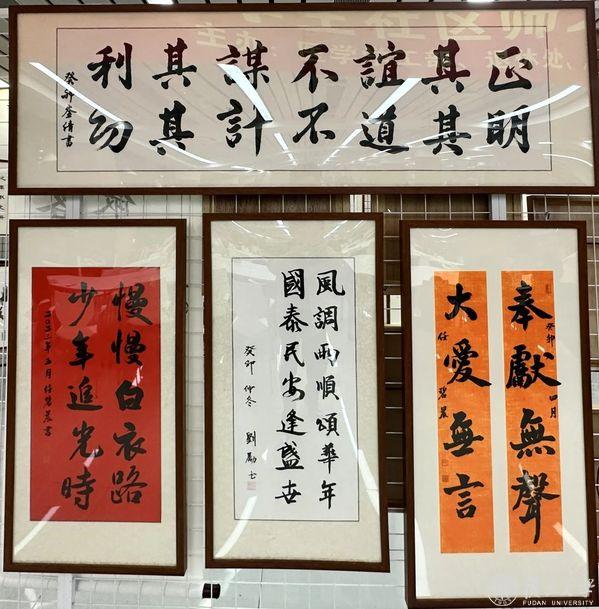 社区师
主办:
正其誼不謀其利
明其道不計其功
癸卯 書
慢慢白衣路
少年追光時
年五月任碧晨書
風調雨順頌華年
國泰民安逢盛世
癸卯 仲冬 劉勵
癸卯 四月
奉獻無聲
大愛無言
任碧晨
FUDAN UNIVERSITY